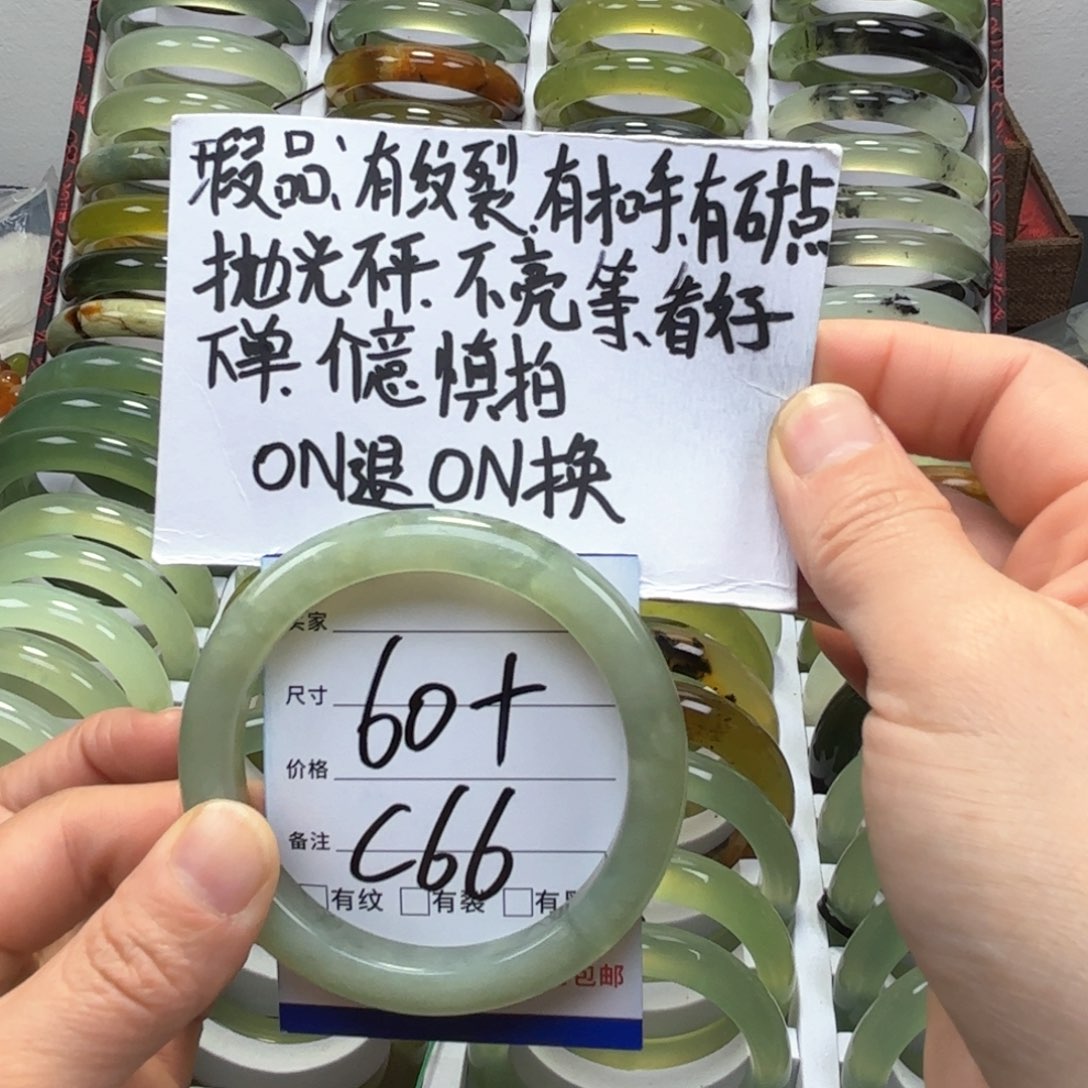 瑕品、有纹裂、有扣手、有矿点
抛光不平、不亮等、看好
下单、介意慎拍
ON退 ON换
买家
尺寸 60+
价格
备注 C66
有纹 有裂 有
包邮